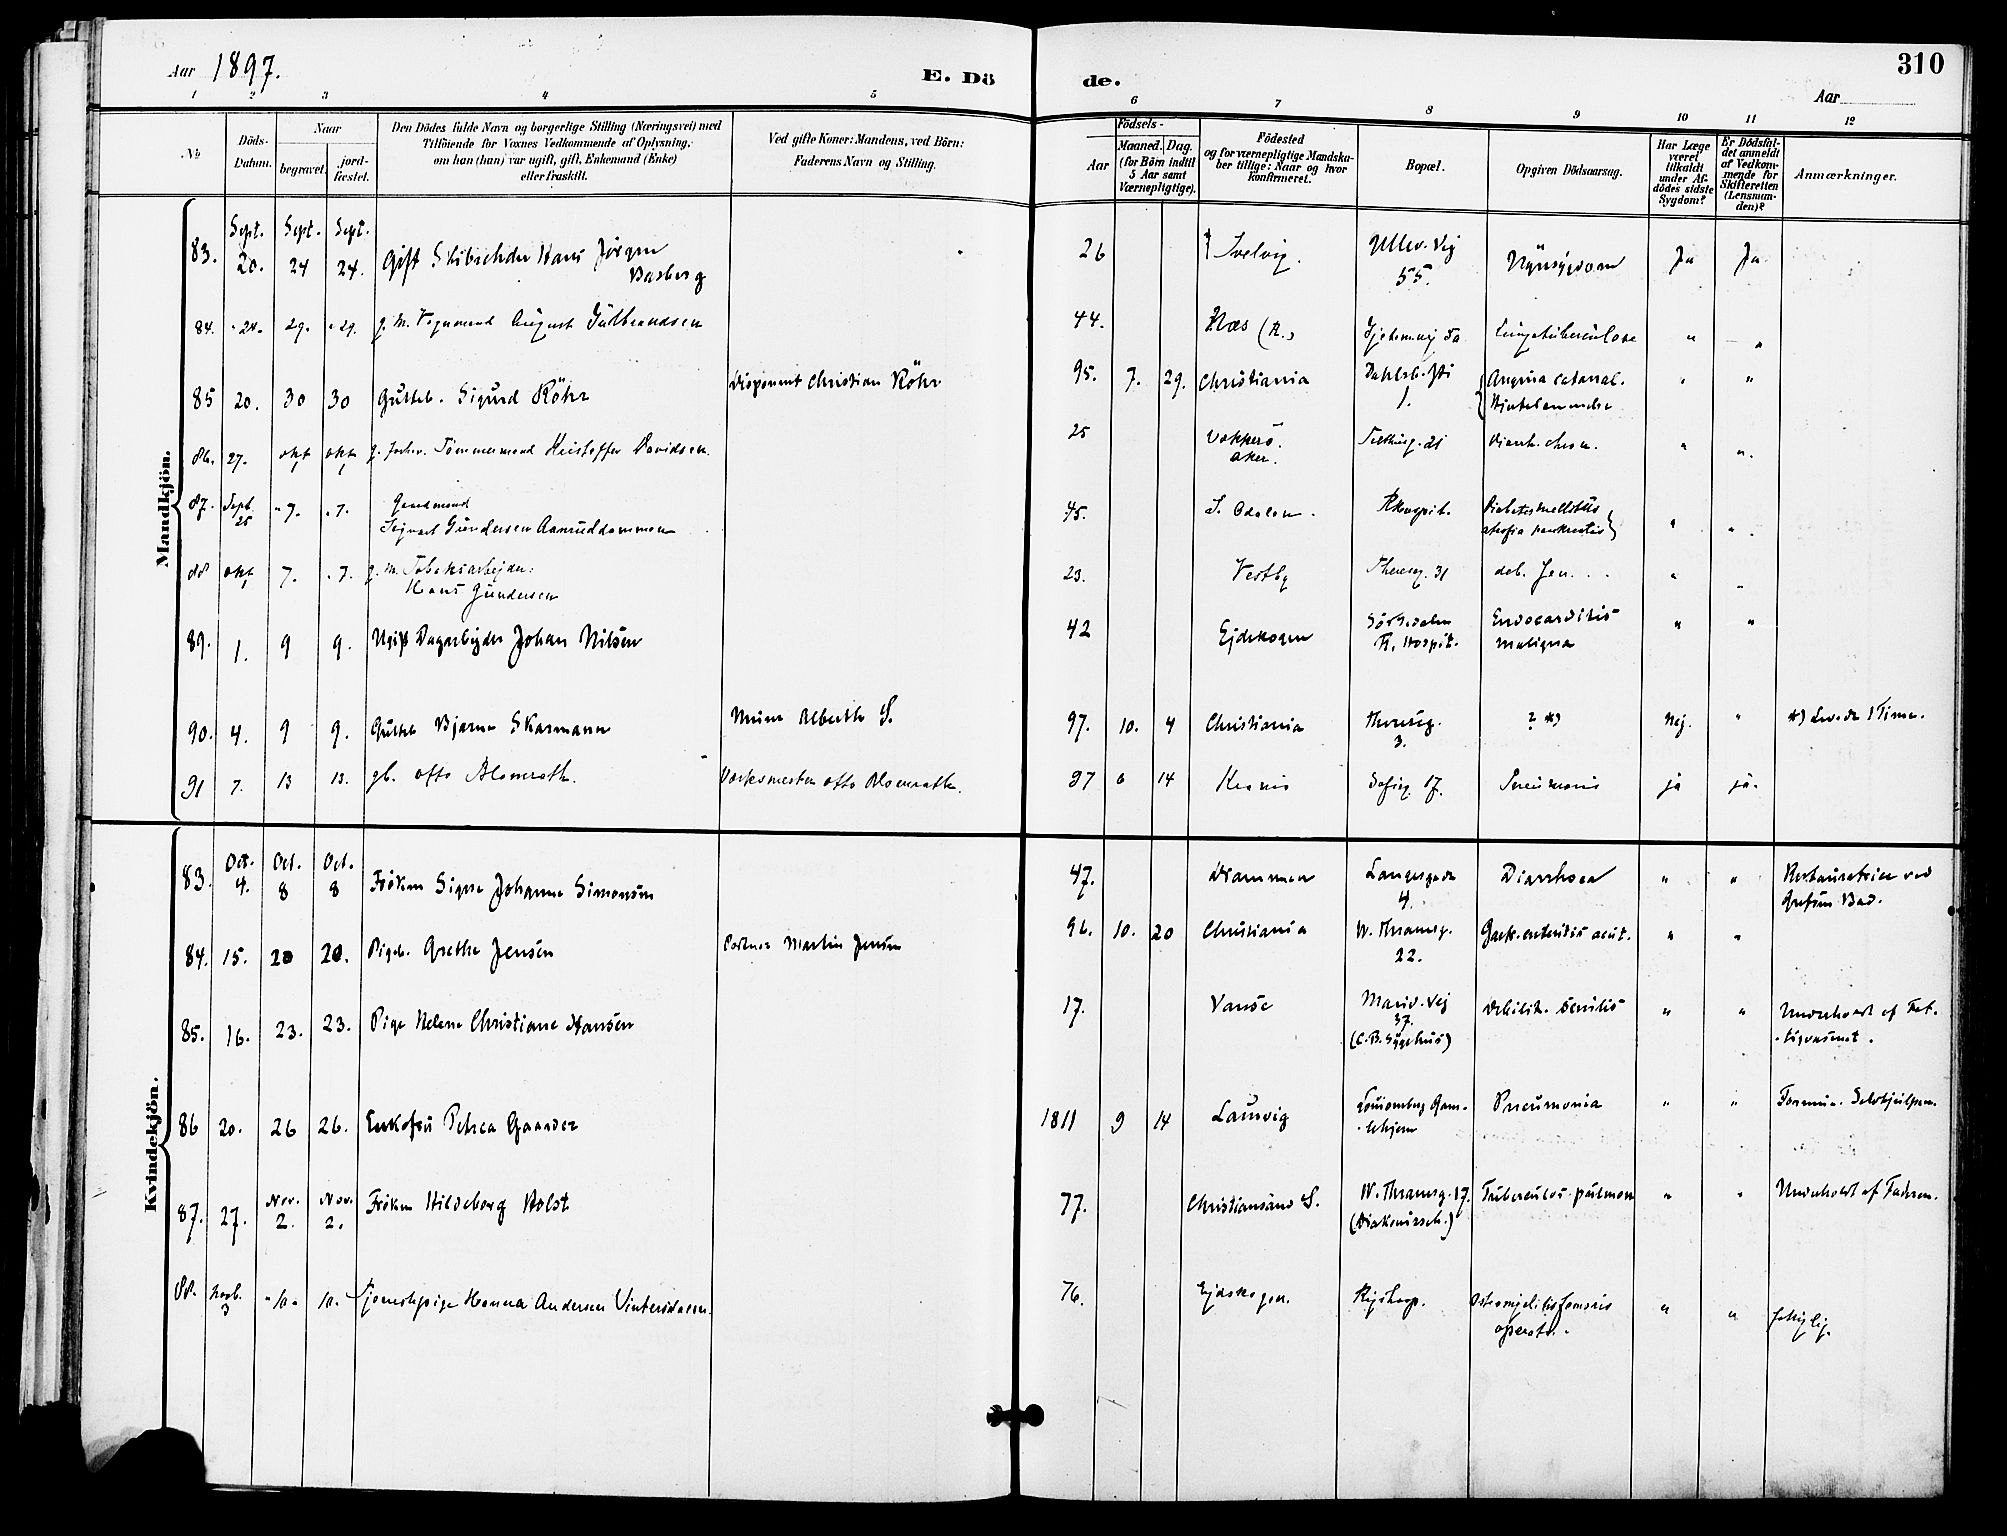 Aar 1897.
E. Dö de.
310
Aar
1 2 3 4 5 6 7 8 9 10 11 12
No
Döds-Datum.
Naar
begravet.
jord-fæstet.
Den Dödes fulde Navn og borgerlige Stilling (Næringsvei) med
Tilföiende for Voxnes Vedkommende af Oplysning,
om han (hun) var ugift, gift, Enkemand (Enke)
eller fraskilt.
Ved gifte Koner: Mandens, ved Börn:
Faderens Navn og Stilling.
Födsels-
Aar
Maaned. Dag.
(for Börn indtil
5 Aar samt
Værnepligtige).
Födested
og for værnepligtige Mandska-
ber tillige: Naar og hvor
konfirmeret.
Bopæl.
Opgiven Dödsaarsag.
Har Læge
været
tilkaldt
under Af-
dödes sidste
Sygdom?
Er Dödsfal-
det anmeldt
af Vedkom-
mende for
Skifteretten
(Lensman-
den)?
Anmærkninger.
Mandkjön.
Sept. Sept. Sept.
83. 20. 24 24. Gift Hans Jörgen Basberg 26 Svelvig. Ullev. Vej 55. Nyresygdom Ja Ja
84. " 24. 29. " 29. g. m. Vognmand August Gulbrandsen 44. Næs (R.) Lungetuberculose " "
85 20. 30 30 Gutteb. Sigurd Röhr Disponent Christian Röhr 95. 7. 29. Christiania 1. Angina catarral. Hjertelammelse " "
86. 27. okt 1 okt 1 Tömmermand Kristoffer Davidsen. 25 Vækkerö. Aker. Diarrh. chron. " "
87. Sept. 25 " 7. " 7. Gaardmand Sigvart Gundersen Aamuddammen 45. S. Odalen. Rhospit. Diabetes mellitus atrofia pankreatis " "
88 okt 1 7. " 7. g. m. Tobaksarbejder Hans Gundersen 23. Vestby Theresg. 31 " "
89. 1. 9 9. Ugift Dagarbejder Johan Nilsen 42 Ejdskogen Hospit. Endocarditis maligna " "
90. 4. 9 9. Gutteb Bjarne Skarmann Murer Alberth S. 97. 10. 4 Christiania Theresg. 3. ? *) Nej. " *) Levede 1 Time.
91 7. 13 13. gb. Otto Blomrath. Værksmester Otto Blomrath. 97 6 14 Krania Sofieg. 17. Pneumoni ja ja.
Kvindekjön.
Oct. Oct. Oct.
83. 4. 8 8 Fröken Signe Johanne Simonsen 47. Drammen Langesgade 4. Diarrhoea " " Restauratrice ved Grefsen Bad.
84. 15. 20 20. Pigeb. Grethe Jensen Portner Martin Jensen 96. 10. 20 Christiania W. Thranesg. 22. Gastr. enteritis acut. " "
85. 16. 23. 23. Pige Helene Christiane Hansen 17. Vanse Marid. Vej 37. (C. B. Sygehus) Debilit. senilis " " Underholdt af Fat-tigvæsenet.
86 20. 26 26. Enkefru Petrea Gaarder 1811 9 14 Laurvig Gam-lehjem Pneumonia " "
87. 27. Nov. 2. Nov. 2. Fröken Hildeborg Holst 77. Christiansand S. W. Thranesg. 17. (Diakonisseh.) Tuberculos. pulmon " " Underholdt af Faderen.
88. Novb. 3 " 10. 10. Tjenestepige Hanna Andersen Vintersdalen. 76. Ejdskogen. Rigshosp. Osteomyelitis femoris operato. " "